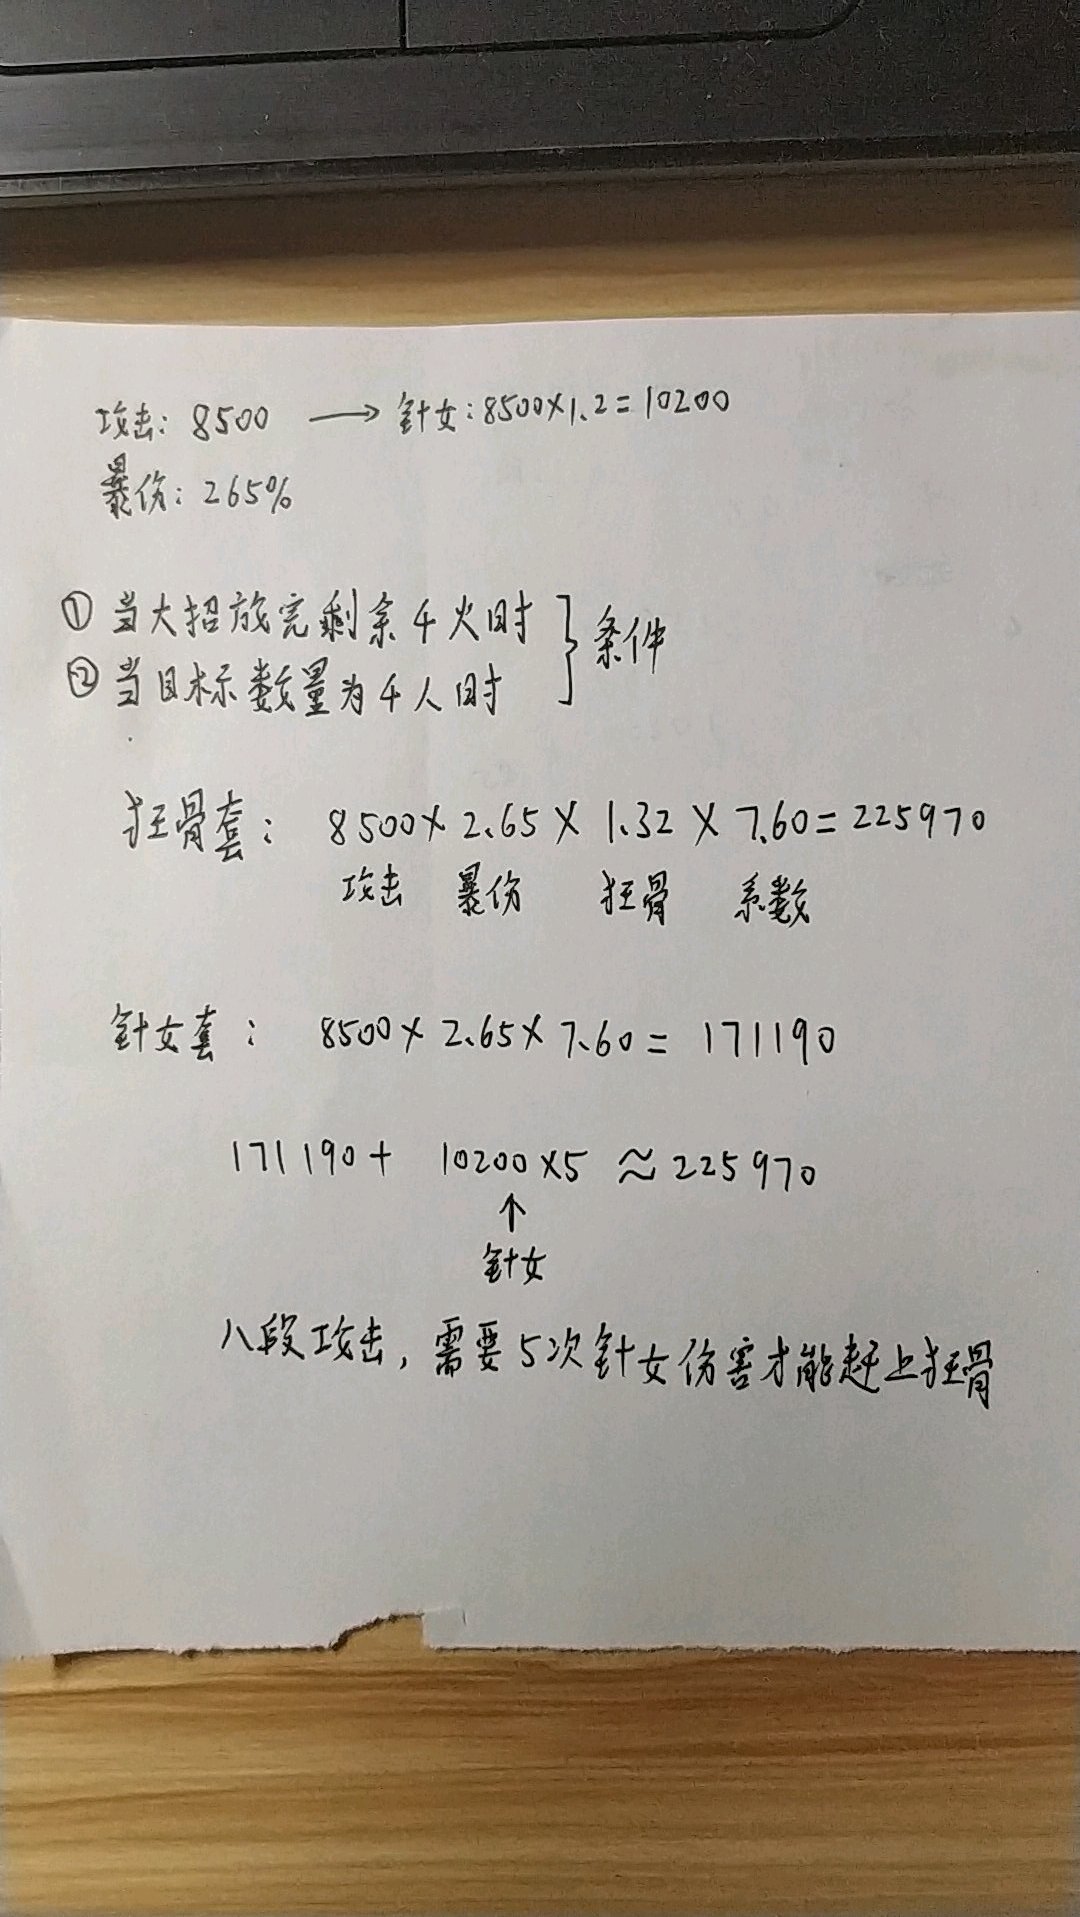 攻击：8500 → 针女：8500×1.2=10200
暴伤：265%
① 当大招放完剩余4火时
② 当目标数量为4人时
} 条件
狂骨套： 8500×2.65×1.32×7.60=225970
攻击 暴伤 狂骨 系数
针女套： 8500×2.65×7.60=171190
171190+ 10200×5≈225970
↑
针女
八段攻击，需要5次针女伤害才能赶上狂骨